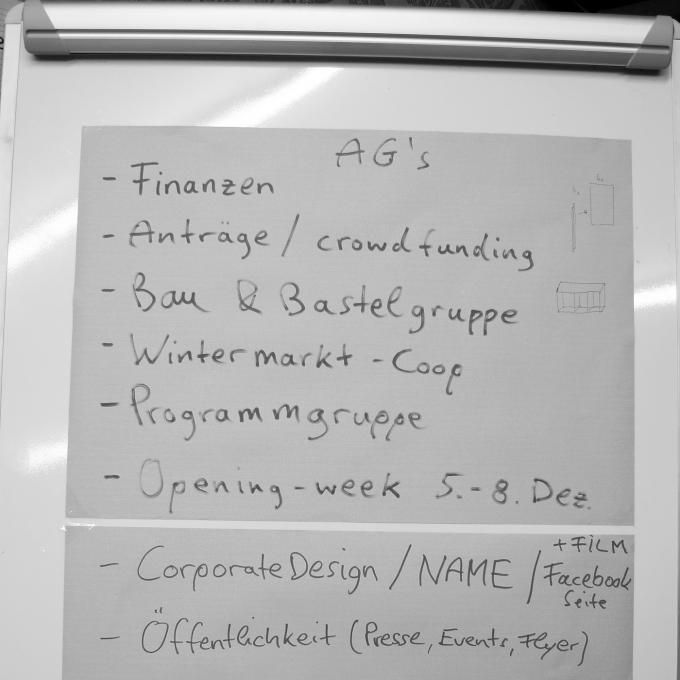 AG's
- Finanzen
- Anträge / crowdfunding
- Bau & Bastelgruppe
- Wintermarkt - Coop
- Programmgruppe
- Opening-week 5.-8. Dez.
+ FiLM
- Corporate Design / NAME / Facebook
Seite
- Öffentlichkeit (Presse, Events, Flyer)